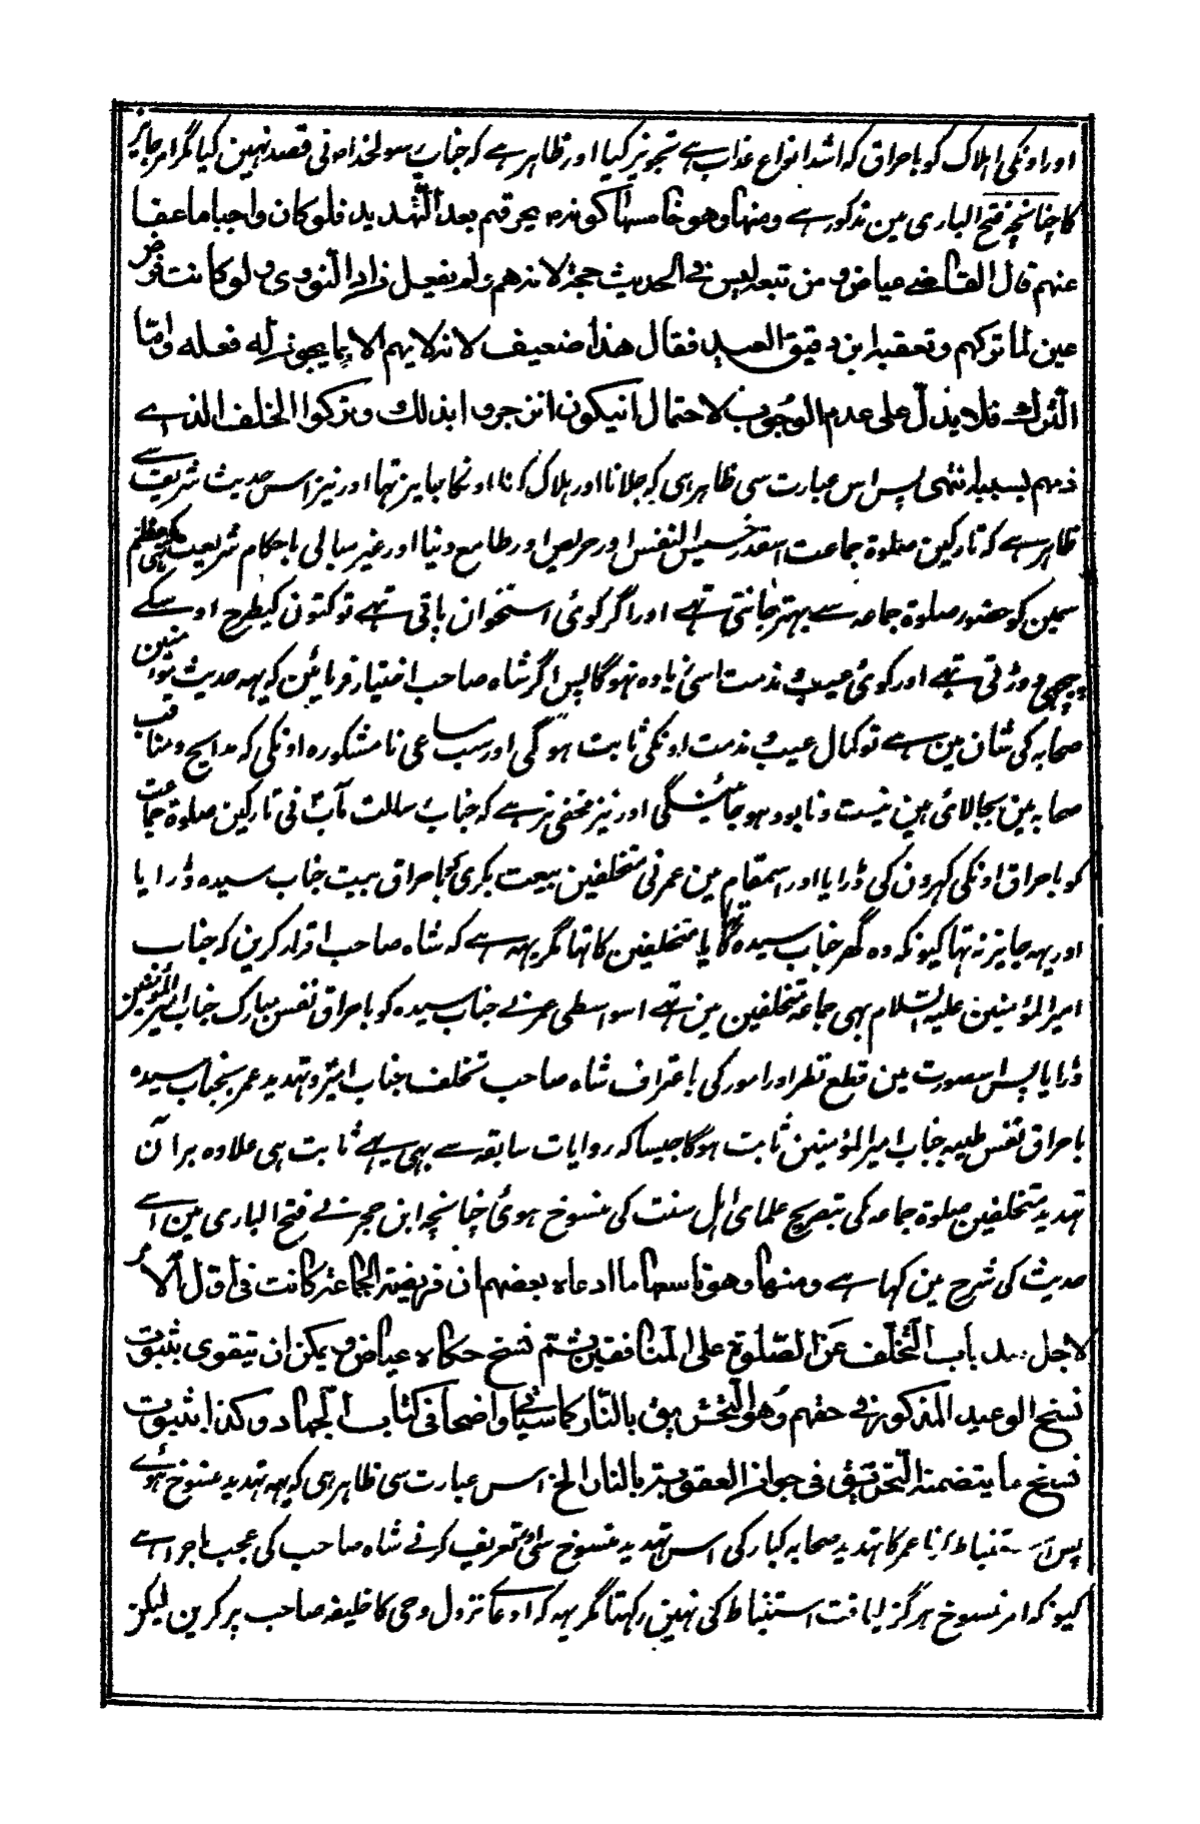 اور اونکی اہلاک کو باحراق کہ اشد انواع عذاب ہے تجویز کیا اور ظاہر ہے کہ جناب رسولخدا نی قصد نہین کیا مگر امر جایز
کا چنانچہ فتح الباری مین مذکور ہے ومنہا وھو خامسہا کونہ یحرقہم بعد التہدید فلو کان واجبا ما عفا
عنہم قال القاضے عیاض و من تبعہ لیس فے الحدیث حجۃ لانہ ھم ولم یفعل زاد النووی ولو کانت فرض
عین لما ترکہم وتعقبہ ابن دقیق العید فقال ھذا ضعیف لانہ لا یہم الا بما یجوز لہ فعلہ واما
الترک فلا یدل علی عدم الوجوب لاحتمال انیکون انزجروا بذلک وترکوا التخلف الذے
ذمہم بسببہ انتہی پس اس عبارت سی ظاہر ہی کہ جلانا اور ہلاک کرنا اونکا جایز تہا اور نیز اس حدیث شریف سے
ظاہر ہے کہ تارکین صلوۃ جماعت اسقدر خسیس النفس اور حریص اور طامع دنیا اور غیر مبالی باحکام شریعت تہی کہ عظم
سمین کو حضور صلوۃ جامعہ سے بہتر جانتی تہے اور اگر کوئی استخوان پاتی تہے تو کتون کیطرح اوسکے
پیچہی دوڑتی تہے اور کوئی عیب و مذمت اسی زیادہ نہوگا پس اگر شاہ صاحب اختیار فرمائین کہ یہہ حدیث مومنین
صحابہ کی شان مین ہے تو کمال عیب و مذمت اونکی ثابت ہوگی اور سب مساعی نامشکورہ اونکی کہ مدایح و مناقب
صحابہ مین بجالائی ہین نیست و نابود ہو جائینگی اور نیز مخفی نرہے کہ جناب رسالت مآب نی تارکین صلوۃ جماعت
کو باحراق اونکی گہرون کی ڈرایا اور اسمقام مین عمر نی متخلفین بیعت بکری کو باحراق بیت جناب سیدہ ڈرایا
اور یہہ جایز نہ تہا کیونکہ وہ گھر جناب سیدہ کا تہا یا متخلفین کا تہا مگر یہہ ہے کہ شاہ صاحب اقرار کرین کہ جناب
امیر المؤمنین علیہ السلام بہی جماعہ متخلفین مین تہے اسواسطی عمر نے جناب سیدہ کو باحراق نفس مبارک جناب امیر المؤمنین
ڈرایا پس اسصورت مین قطع نظر اور امور کی باعتراف شاہ صاحب تخلف جناب امیر و تہدید عمر بجناب سیدہ
باحراق نفس طیبہ جناب امیر المؤمنین ثابت ہوگا جیسا کہ روایات سابقہ سے بہی یہے ثابت ہی علاوہ بر آن
تہدید متخلفین صلوۃ جامعہ کی بتصریح علمای اہل سنت کی منسوخ ہوئی چنانچہ ابن حجر نے فتح الباری مین اے
حدیث کی شرح مین کہا ہے ومنہا وھو تاسعہا ما ادعاہ بعضہم ان فریضۃ الجماعۃ کانت فی اول الامر
لاجل سد باب التخلف عن الصلوۃ علی المنافقین ثم نسخ حکاہ عیاض ویمکن ان یتقوی بثبوت
نسخ الوعید المذکور فے حقہم وھو التحریق بالنار کما سیاتی واضحا فی کتاب الجہاد وکذا ثبوت
نسخ ما یتضمنہ التحریق فی جواز العقوبۃ بالنار الخ اس عبارت سی ظاہر ہی کہ یہہ تہدید منسوخ ہوئے
پس استنباط ابنا عمر کا تہدید صحابہ کبار کی اس تہدید منسوخ سی و تعریف کرنے شاہ صاحب کی عجب ماجرا ہے
کیونکہ امر منسوخ ہرگز لیاقت استنباط کی نہین رکہتا مگر یہہ کہ ادعاے نزول وحی کا خلیفہ صاحب پر کرین لیکن